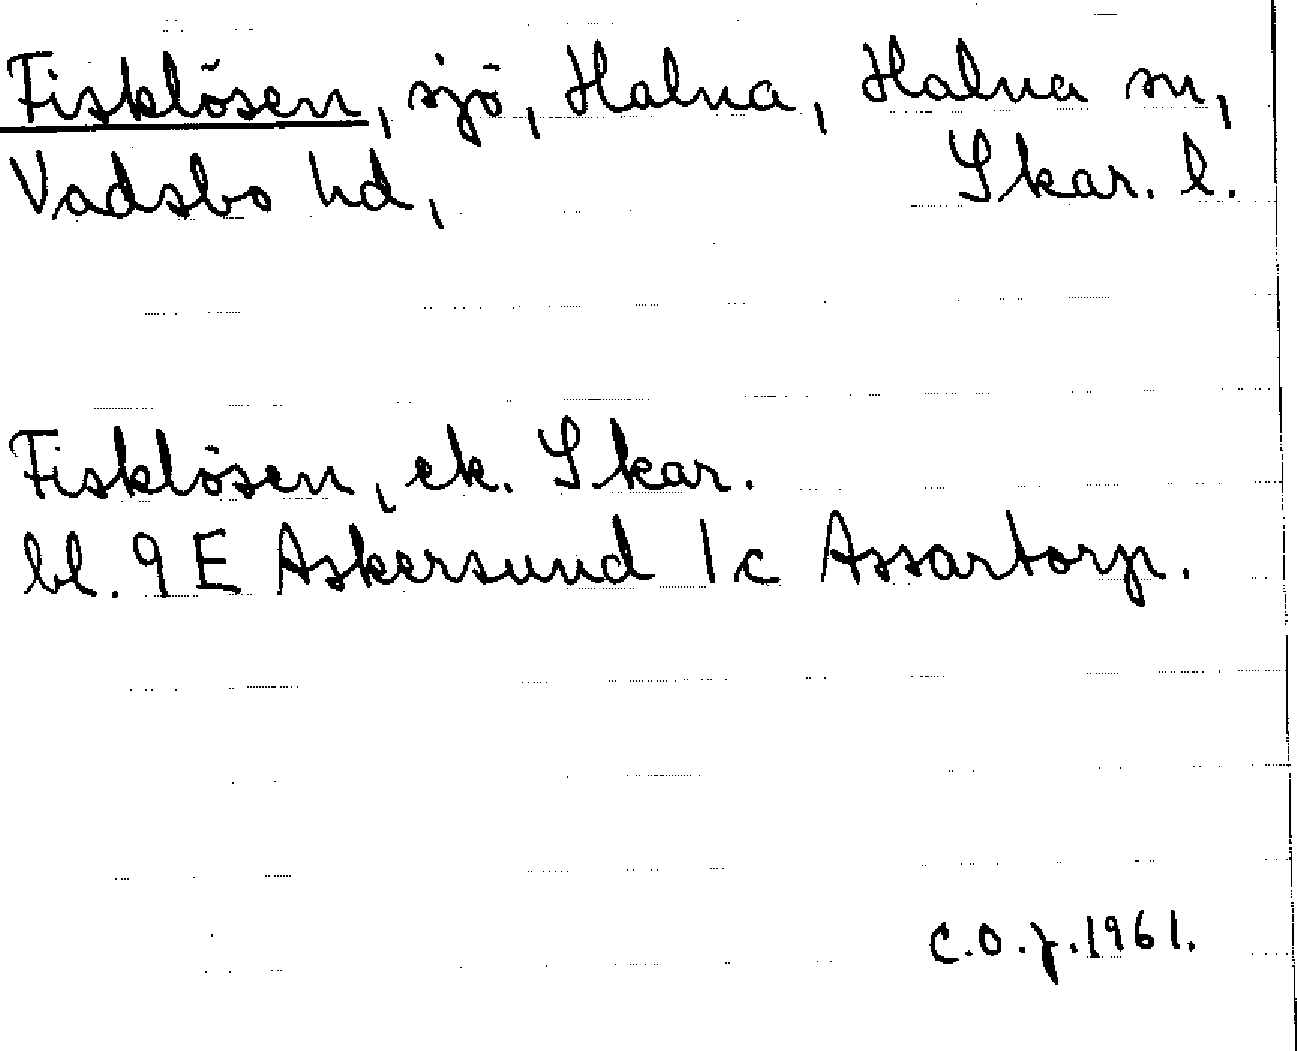 Fisklösen, sjö, Halna, Halna sn,
Vadsbo hd, Skar. l.
Fisklösen, ek. Skar.
bl. 9 E Askersund 1c Assartorp.
C.O.J. 1961.